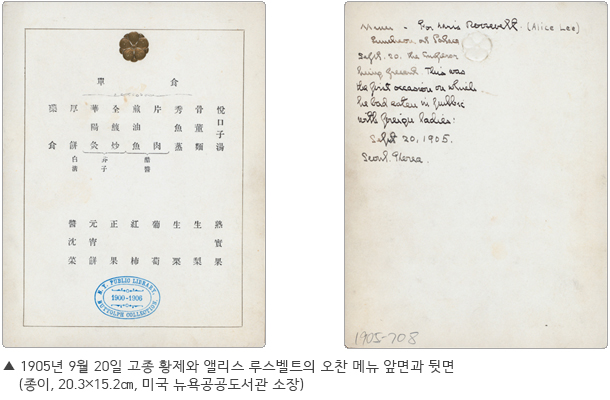 單 食
悅口子湯
骨董麵
秀魚蒸
片肉
煎油魚
全鰒炒
華陽灸
厚餠
食
醋醬
芥子
白淸
熟實果
生梨
生栗
葡萄
紅柿
正果
元宵餠
醬沈菜
N. Y. PUBLIC LIBRARY,
1900-1906
BUTTOLPH COLLECTION.
Menu - For Miss Roosevelt. (Alice Lee)
Luncheon at Palace
Sept. 20. the Emperor
being present. This was
the first occasion on which
he had eaten in public
with foreign ladies:
Sept 20, 1905.
Seoul. Korea.
1905-708
▲ 1905년 9월 20일 고종 황제와 앨리스 루스벨트의 오찬 메뉴 앞면과 뒷면
(종이, 20.3×15.2㎝, 미국 뉴욕공공도서관 소장)